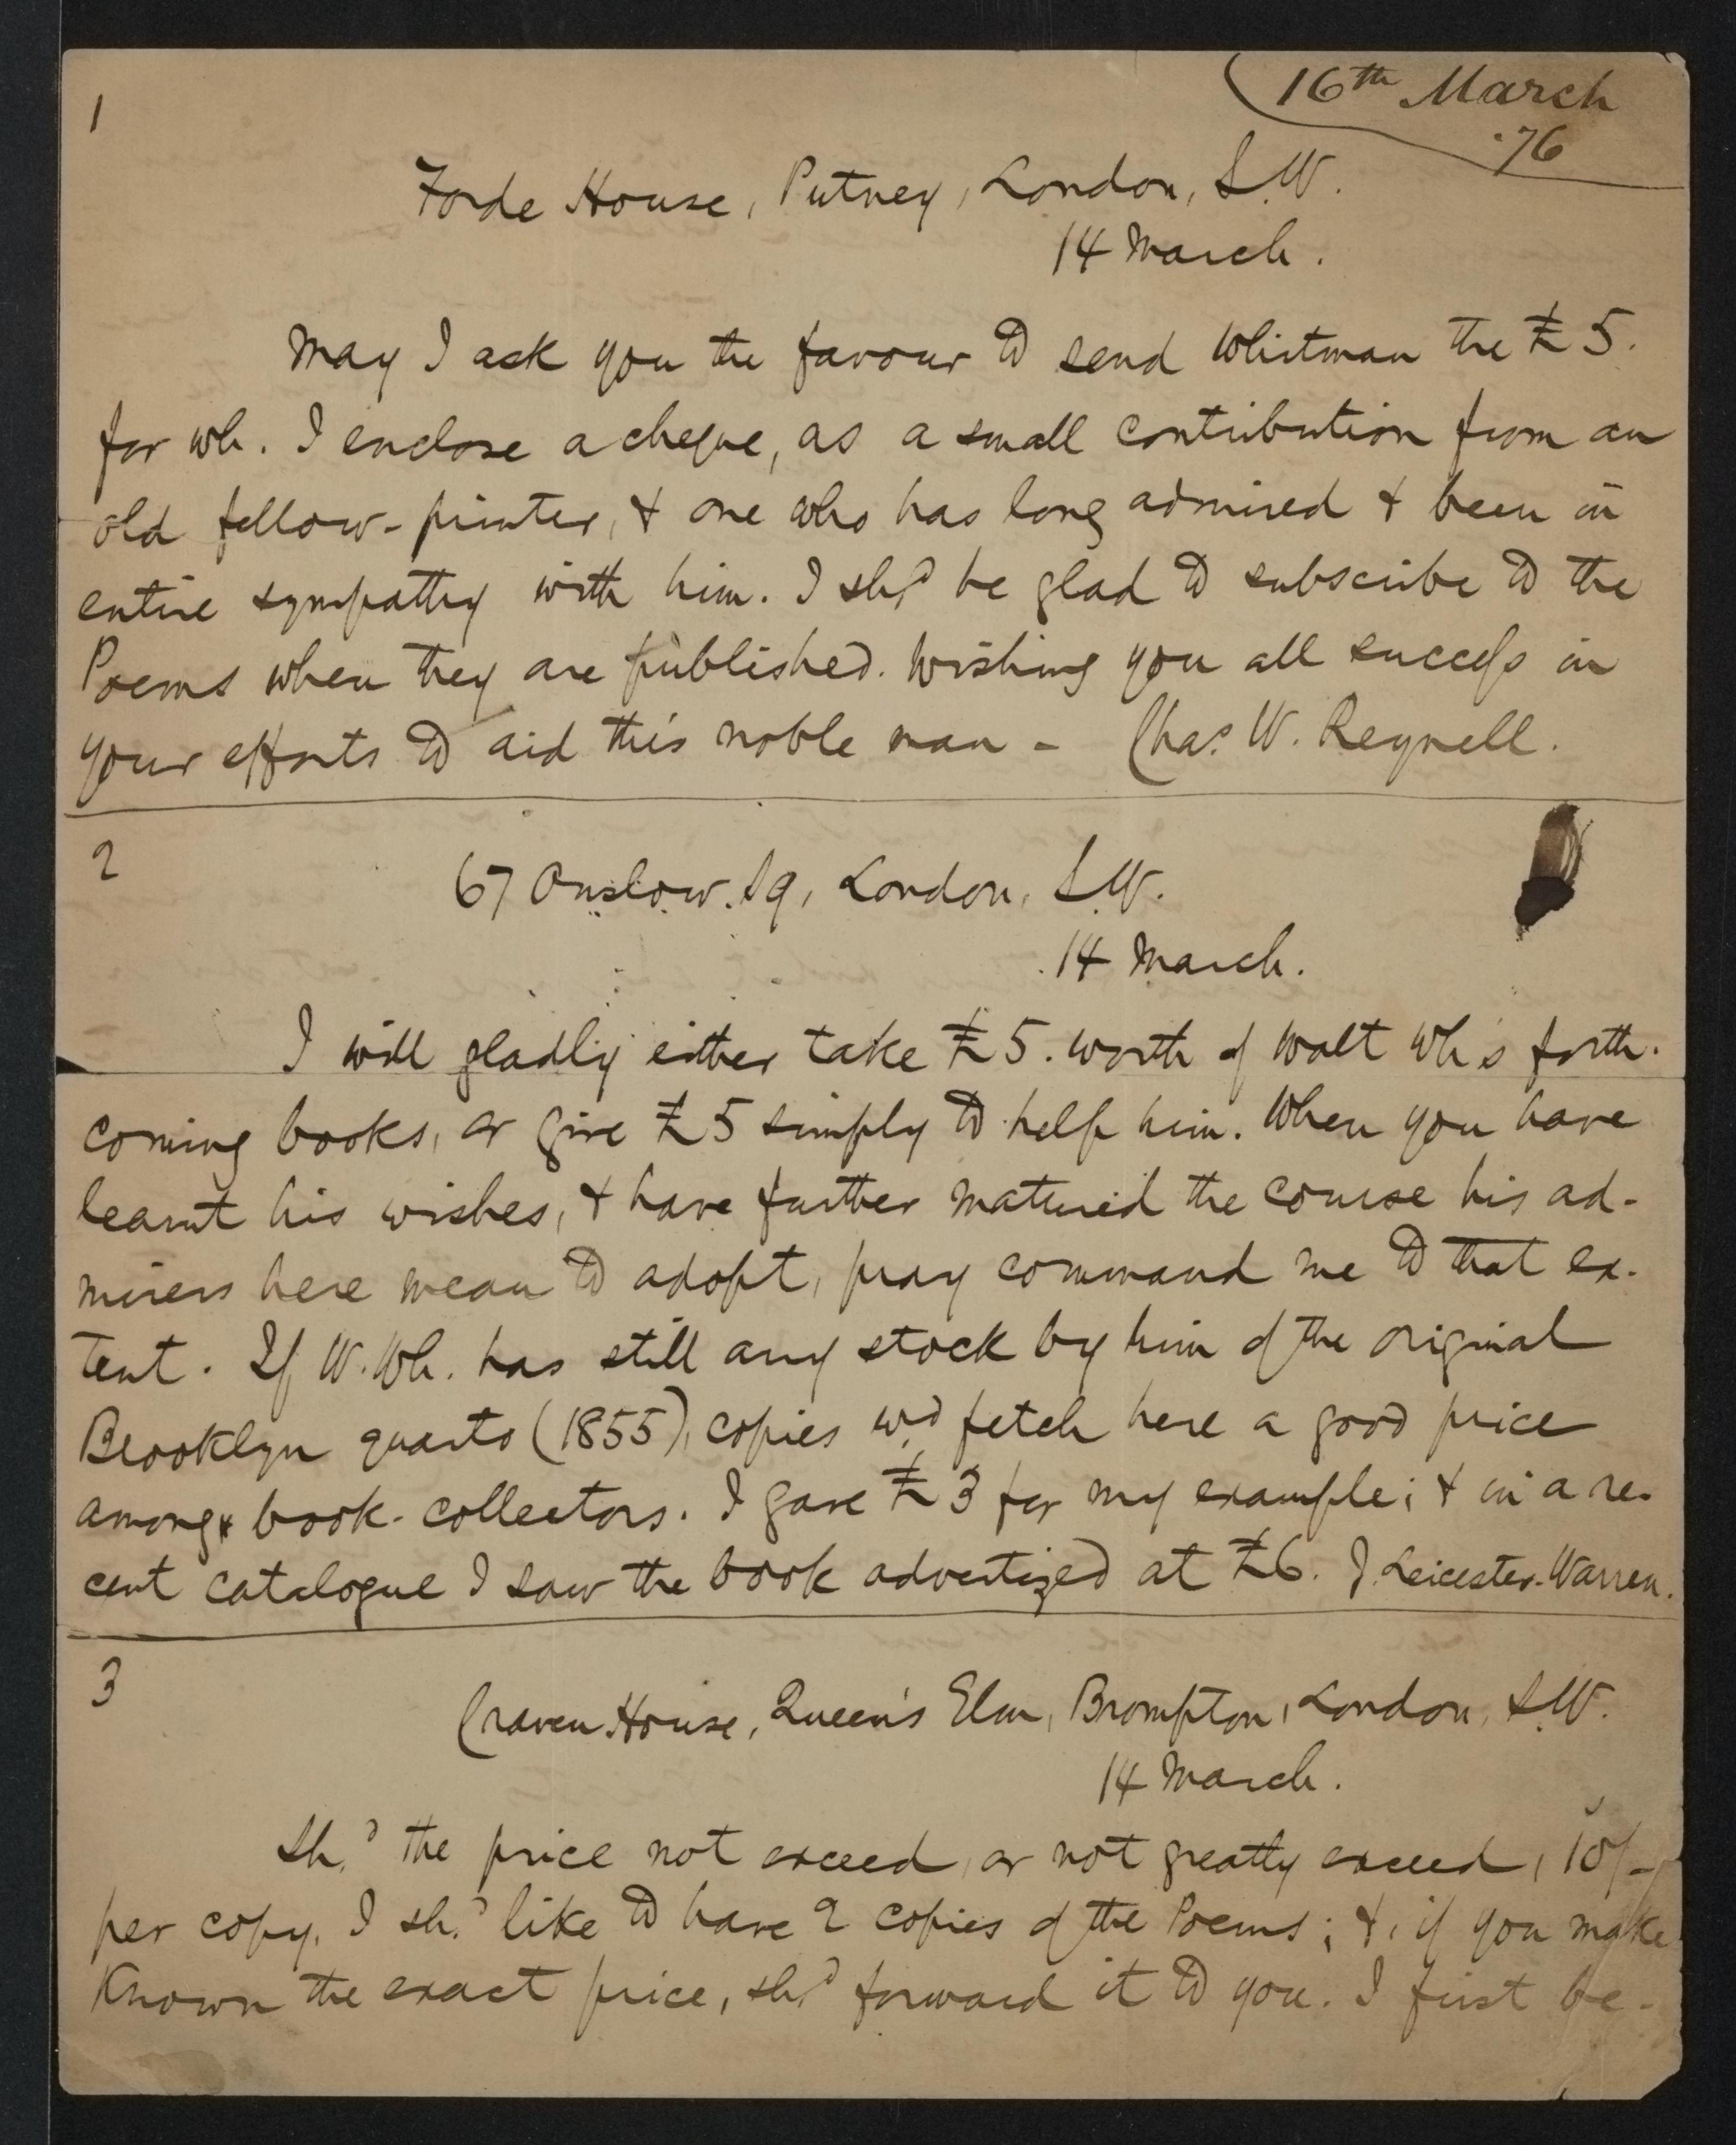 1
16th March
'76
Forde House, Putney, London, S.W.
14 March.
May I ask you the favour to send Whitman the £5.
for wh. I enclose a cheque, as a small contribution from an
old fellow-printer, & one who has long admired & been in
entire sympathy with him. I shd be glad to subscribe to the
Poems when they are published. Wishing you all success in
your efforts to aid this noble man - Chas. W. Reynell.
2
67 Onslow Sq, London, S.W.
14 March.
I will gladly either take £5. worth of Walt Wh's forth-
coming books, or give £5 simply to help him. When you have
learnt his wishes, & have further matured the course his ad-
mirers here mean to adopt, pray command me to that ex-
tent. If W. Wh. has still any stock by him of the original
Brooklyn quarto (1855), copies wd fetch here a good price
among book-collectors. I gave £3 for my example; & in a re-
cent catalogue I saw the book advertized at £6. J. Leicester-Warren.
3
Craven House, Queen's Elm, Brompton, London, S.W.
14 March.
Shd the price not exceed, or not greatly exceed, 10/-
per copy, I shd like to have 2 copies of the Poems; &, if you make
known the exact price, shd forward it to you. I first be-